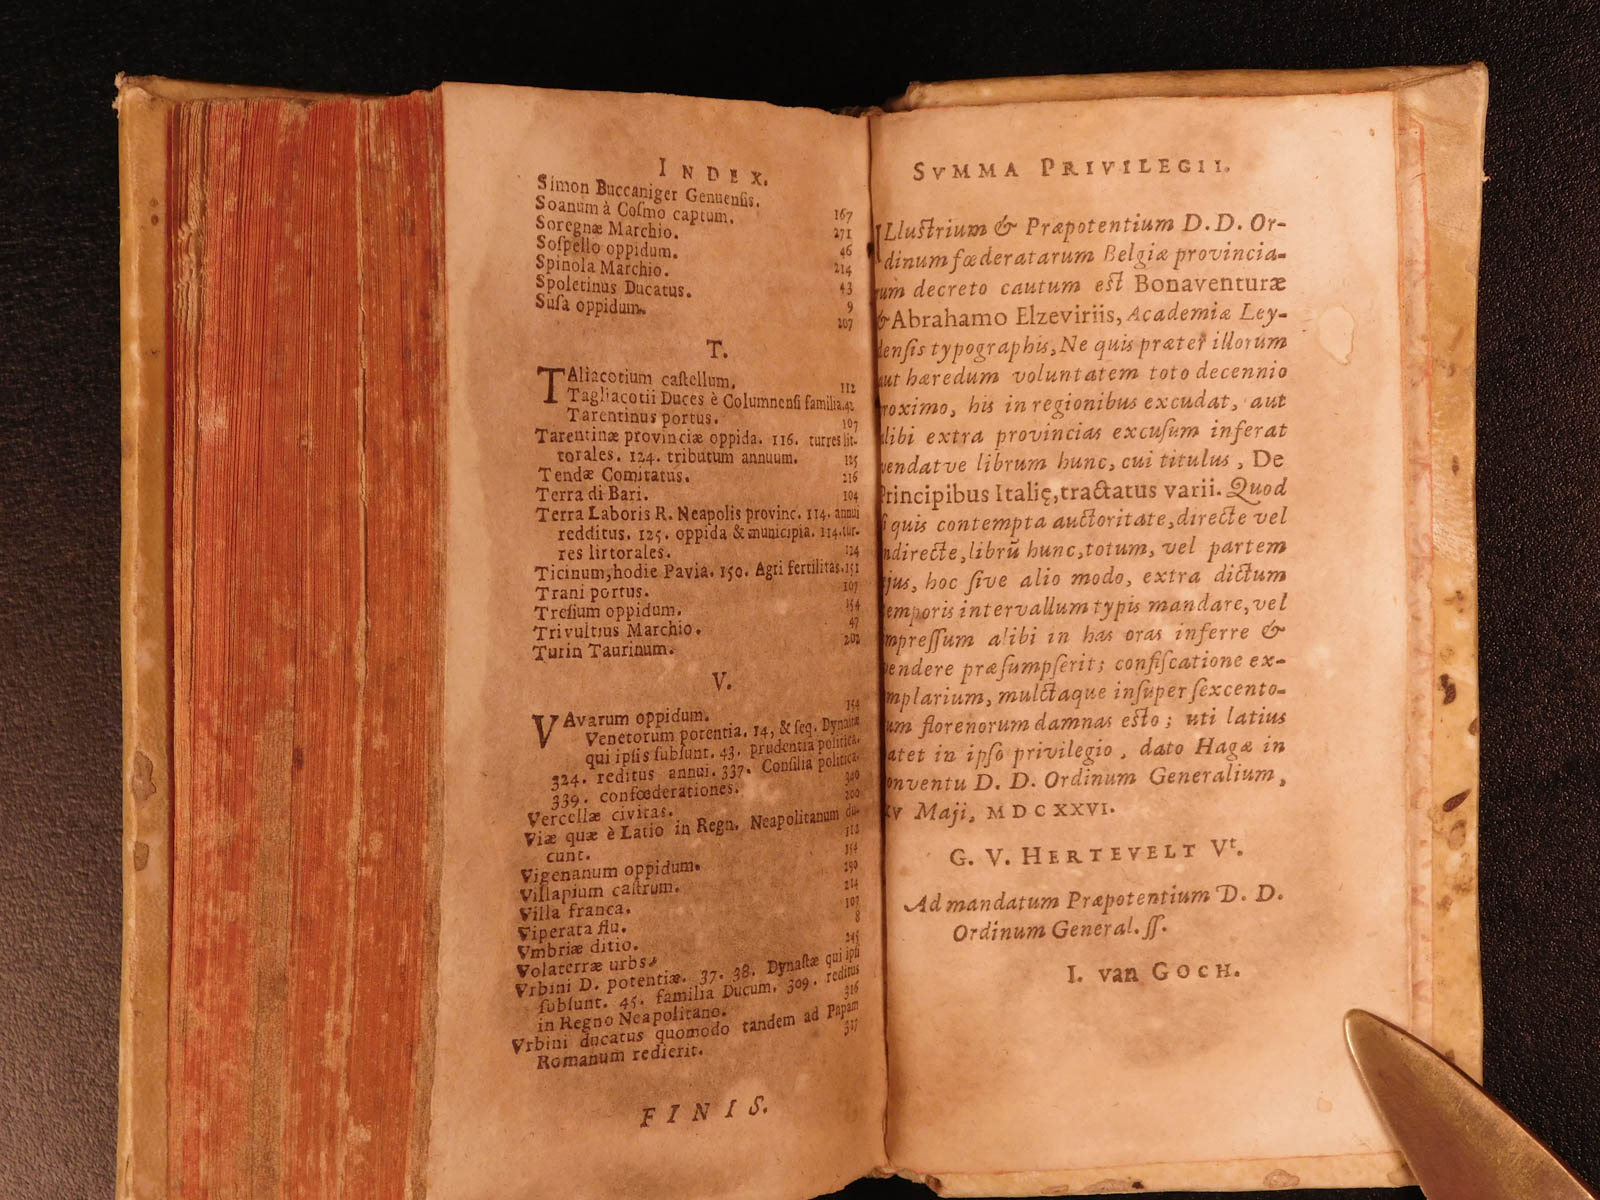 INDEX.
Simon Buccaniger Genuensis. 167
Soanum à Cosmo captum. 271
Soregnæ Marchio. 46
Sospello oppidum. 214
Spinola Marchio. 43
Spoletinus Ducatus. 9
Susa oppidum. 207
T.
TAliacotium castellum. 112
Tagliacotii Duces è Columnensi familia. 42
Tarentinus portus. 107
Tarentinæ provinciæ oppida. 116. turres lit-
torales. 124. tributum annuum. 125
Tendæ Comitatus. 216
Terra di Bari. 104
Terra Laboris R. Neapolis provinc. 114. annui
redditus. 125. oppida & municipia. 114. tur-
res littorales. 124
Ticinum, hodie Pavia. 150. Agri fertilitas. 151
Trani portus. 107
Tresium oppidum. 154
Trivultius Marchio. 47
Turin Taurinum. 202
V.
VAvarum oppidum. 154
Venetorum potentia. 14, & seq. Dynastæ
qui ipsis subsunt. 43. prudentia politica.
324. reditus annui. 337. Consilia politica.
339. confœderationes. 340
Vercellæ civitas. 200
Viæ quæ è Latio in Regn. Neapolitanum du-
cunt. 112
Vigenanum oppidum. 154
Villapium castrum. 290
Villa franca. 214
Viperata flu. 107
Vmbriæ ditio. 8
Volaterræ urbs. 245
Vrbini D. potentiæ. 37. 38. Dynastæ qui ipsi
subsunt. 45. familia Ducum. 309. reditus
in Regno Neapolitano. 316
Vrbini ducatus quomodo tandem ad Papam
Romanum redierit. 317
FINIS.
SVMMA PRIVILEGII.
ILlustrium & Præpotentium D. D. Or-
dinum fœderatarum Belgiæ provincia-
rum decreto cautum est Bonaventuræ
& Abrahamo Elzeviriis, Academiæ Ley-
densis typographis, Ne quis præter illorum
aut hæredum voluntatem toto decennio
proximo, his in regionibus excudat, aut
alibi extra provincias excusum inferat
vendatve librum hunc, cui titulus, De
Principibus Italię, tractatus varii. Quod
si quis contempta auctoritate, directe vel
indirecte, librū hunc, totum, vel partem
ejus, hoc sive alio modo, extra dictum
temporis intervallum typis mandare, vel
impressum alibi in has oras inferre &
vendere præsumpserit; confiscatione ex-
emplarium, mulctaque insuper sexcento-
rum florenorum damnas esto; uti latius
patet in ipso privilegio, dato Hagæ in
conventu D. D. Ordinum Generalium,
xv Maji, MDCXXVI.
G. V. HERTEVELT Vt.
Ad mandatum Præpotentium D. D.
Ordinum General. ss.
I. van GOCH.